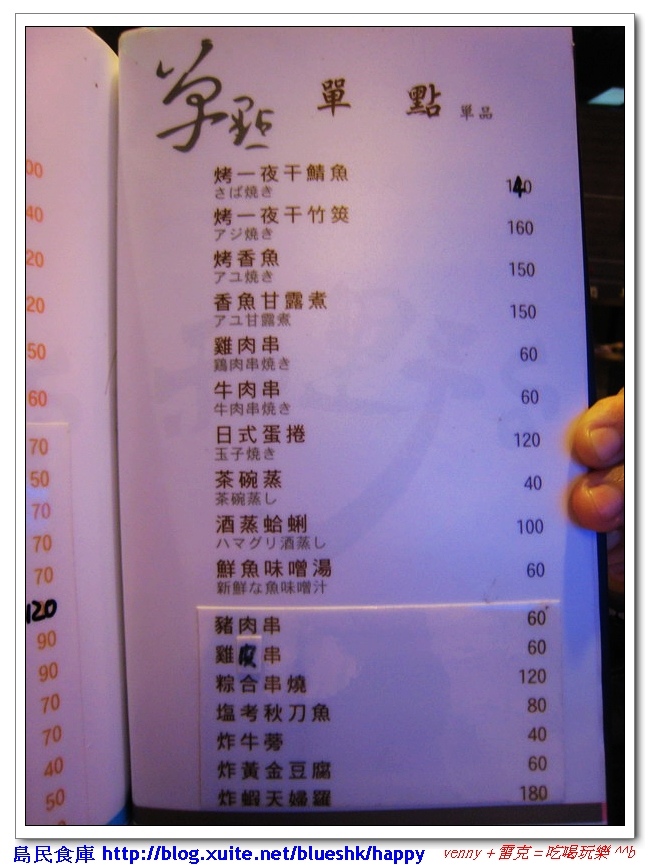 單點
單點 單品
烤一夜干鯖魚 140
さば焼き
烤一夜干竹筴 160
アジ焼き
烤香魚 150
アユ焼き
香魚甘露煮 150
アユ甘露煮
雞肉串 60
鶏肉串焼き
牛肉串 60
牛肉串焼き
日式蛋捲 120
玉子焼き
茶碗蒸 40
茶碗蒸し
酒蒸蛤蜊 100
ハマグリ酒蒸し
鮮魚味噌湯 60
新鮮な魚味噌汁
豬肉串 60
雞皮串 60
粽合串燒 120
塩考秋刀魚 80
炸牛蒡 40
炸黃金豆腐 60
炸蝦天婦羅 180
00
40
20
20
50
60
70
50
70
70
70
120
90
90
70
70
40
50
島民食庫 http://blog.xuite.net/blueshk/happy
venny + 雷克 = 吃喝玩樂 ^^b